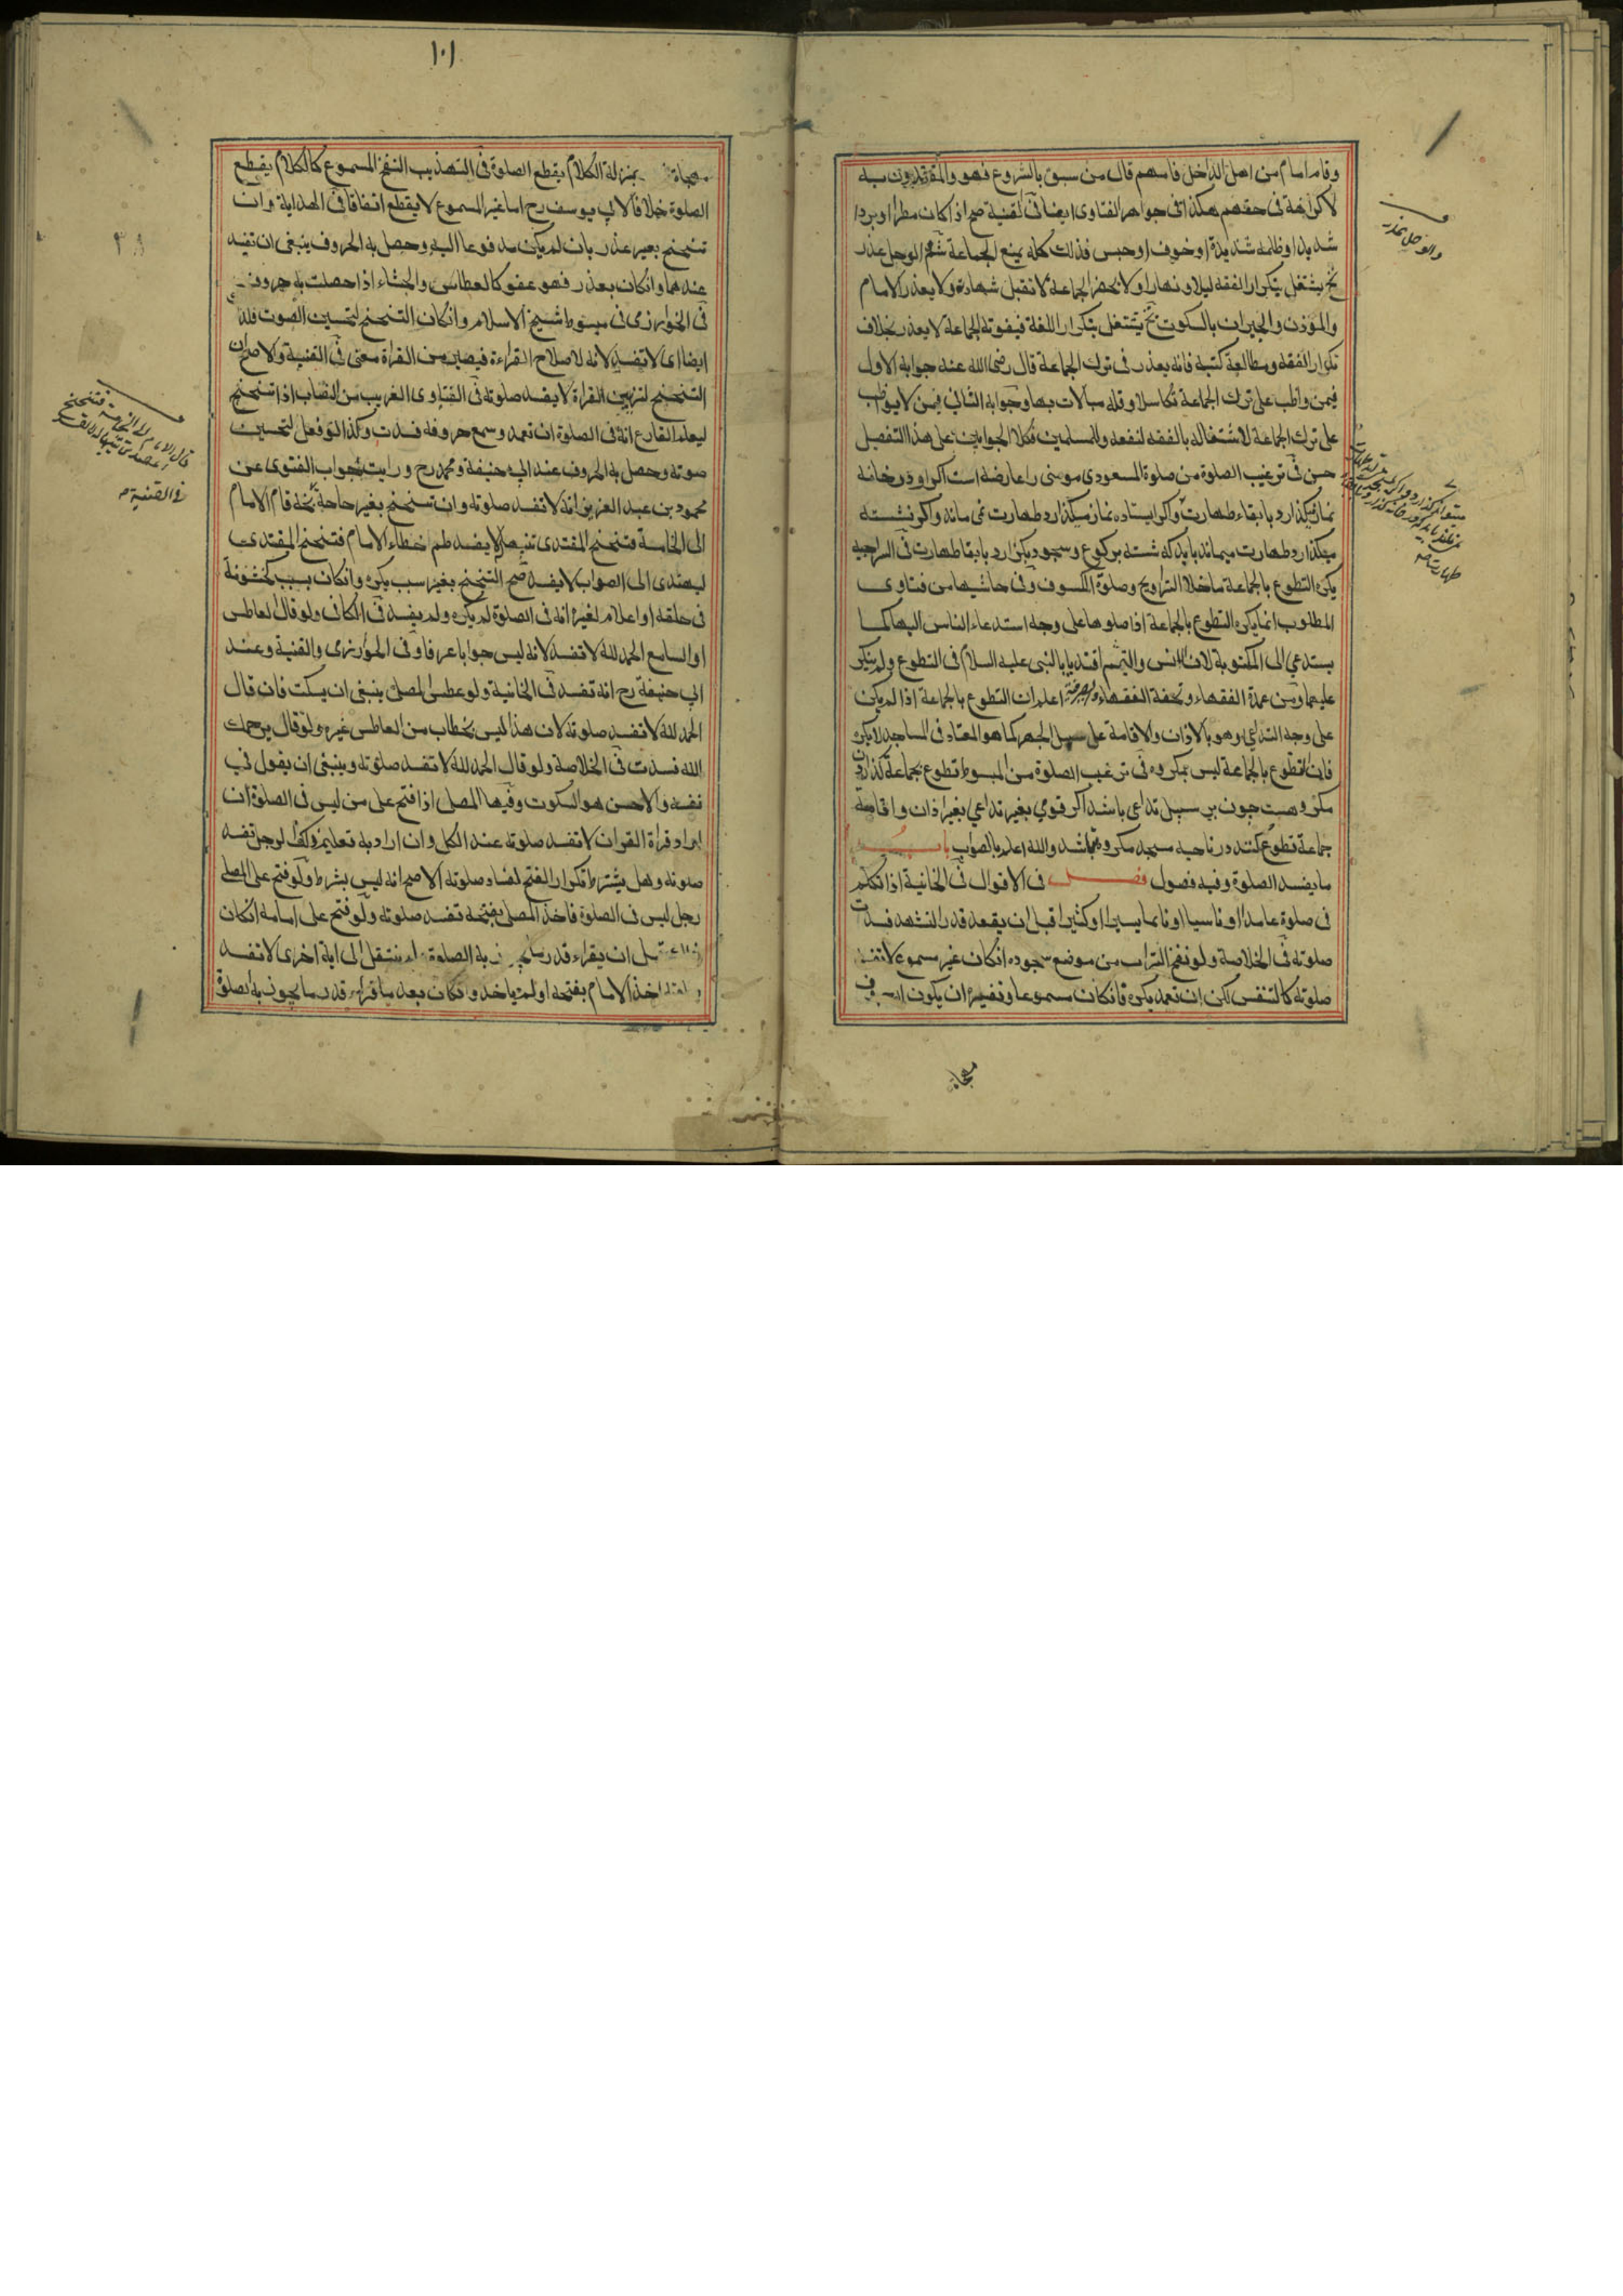 وقام امام من اهل الداخل فامهم قال من سبق بالشروع فهو والمقتدون به
لا كراهة فى حقهم هكذا فى جواهر الفتاوى ايضا فى القنية صح اذا كان مطرا او بردا
شديدا وظلمة شديدة او خوف او حبس فذلك كله يمنع الجماعة شم الوجل عذر
يشتغل بتكرار الفقه ليلا ونهارا ولا يحضر الجماعة لا تقبل شهادة ولا يعذر الامام
والمؤذن والجيران بالسكوت نخ يشتغل بتكرار اللغة فيفوته الجماعة لا يعذر بخلاف
تكرار الفقه ومطالعة كتبه فانه يعذر فى ترك الجماعة قال رضى الله عنه جوابه الاول
فيمن واظب على ترك الجماعة تكاسلا وقلة مبالات بها وجوابه الثانى فيمن لا يواظب
على ترك الجماعة لاشتغاله بالفقه لنفعه وللمسلمين فكلا الجوابين على هذا التفصيل
حسن فى ترغيب الصلوة من صلوة المسعودى مومنى را عارضه است اكر او در خانه
نماز ميكذارد با بقاء طهارت واكر ايستاده نماز ميكذارد طهارت نمى ماند واكر نشسته
ميكذارد طهارت ميماند بايد كه نشسته بركوع وسجود بكزارد با بقا طهارت فى السراجيه
يكره التطوع بالجماعة ما خلا التراويح وصلوة الكسوف وفى حاشيها من فتاوى
المطلوب انما يكره التطوع بالجماعة اذا صلوها على وجه استدعاء الناس اليها كما
يستدعي الى المكتوبة لان انس واليتيم اقتديا بالنبى عليه السلام فى التطوع ولم ينكر
عليهما ومن عمدة الفقهاء وتحفة الفقهاء اعلم ان التطوع بالجماعة اذا لم يكن
على وجه التداعي وهو بالاذان والاقامة على سبيل الجهر كما هو المعتاد فى المساجد لا يكره
فان التطوع بالجماعة ليس بمكروه فى ترغيب الصلوة من المبسوط تطوع بجماعة كذاردن
مكروهست چون بر سبيل تداعى باشد اكر قومي بغير تداعي بغير اذان واقامة
جماعة تطوع كنند در ناحيه مسجد مكروه نباشد والله اعلم بالصواب باب
ما يفسد الصلوة وفيه فصول فصل فى الاقوال فى الخانية اذا تكلم
فى صلوة عامدا او ناسيا او نائما يسيرا او كثيرا قبل ان يقعد قدر التشهد فسدت
صلوته فى الخلاصة ولو نفخ التراب من موضع سجوده ان كان غير مسموع لا تفسد
صلوته كالتنفس لكن ان تعمد يكره فان كان مسموعا وتفسيره ان يكون له حروف
مهجاة
والوحل عذر
طهارت
١٠١
مهجاة بمنزلة الكلام يقطع الصلوة فى التهذيب النفخ المسموع كالكلام يقطع
الصلوة خلافا لابى يوسف رح اما غير المسموع لا يقطع اتفاقا فى الهداية وان
تنحنح بغير عذر بان لم يكن مدفوعا اليه وحصل به الحروف ينبغى ان تفسد
عندهما وان كان بعذر فهو عفو كالعطاس والجشاء اذا حصلت به حروف
فى الخوارزمى فى مبسوط شيخ الاسلام وان كان التنحنح لتحسين الصوت فلا
ايضا اى لا تفسد لانه لاصلاح القراءة فيصير من القراة معنى فى القنية والاصح ان
التنحنح لتزيين القراة لا يفسد صلوته فى الفتاوى الغريب من النصاب اذا تنحنح
ليعلم القارع انه فى الصلوة ان تعمد وسمع حروفه فسدت وكذا لو فعل لتحسين
صوته وحصل به الحروف عند ابى حنيفة ومحمد رح ورايت بجواب الفتوى عن
محمود بن عبد العزيز انه لا تفسد صلوته وان تنحنح بغير حاجة نخ قام الامام
الى الخامسة فتنحنح المقتدى تنبيها لا يفسد ظم خطاء الامام فتنحنح المقتدى
ليهتدى الى الصواب لا يفسد صح التنحنح بغير سبب يكره وان كان بسبب لخشونة
فى حلقه او اعلام لغيره انه فى الصلوة لم يكره ولم يفسد فى الكافى ولو قال العاطس
او السامع الحمد لله لا تفسد لانه ليس جوابا عرفا وفى الخوارزمى والقنية وعند
ابى حنيفة رح انه تفسد فى الخانية ولو عطس المصلى ينبغى ان يسكت فان قال
الحمد لله لا تفسد صلوته لان هذا ليس بخطاب من العاطس غيره ولو قال يرحمك
الله فسدت فى الخلاصة ولو قال الحمد لله لا تفسد صلوته وينبغى ان يقول فى
نفسه والاحسن هو السكوت وفيها المصلى اذا فتح على من ليس فى الصلوة ان
اراد قراة القران لا تفسد صلوته عند الكل وان اراد به تعليم ذلك الرجل تفسد
صلوته وهل يشترط تكرار الفتح لفساد صلوته الاصح انه ليس بشرط ولو فتح على المصلى
رجل ليس فى الصلوة فاخذ المصلى بفتحه تفسد صلوته ولو فتح على امامه ان كان
قبل ان يقراء قدر به الصلوة ولم ينتقل الى اية اخرى لا تفسد
اخذ الامام بفتحه او لم ياخذ وان كان بعد ما قراء قدر ما يجوز به الصلوة
قال الامام الى الخامسة فتنحنح
فى القنية